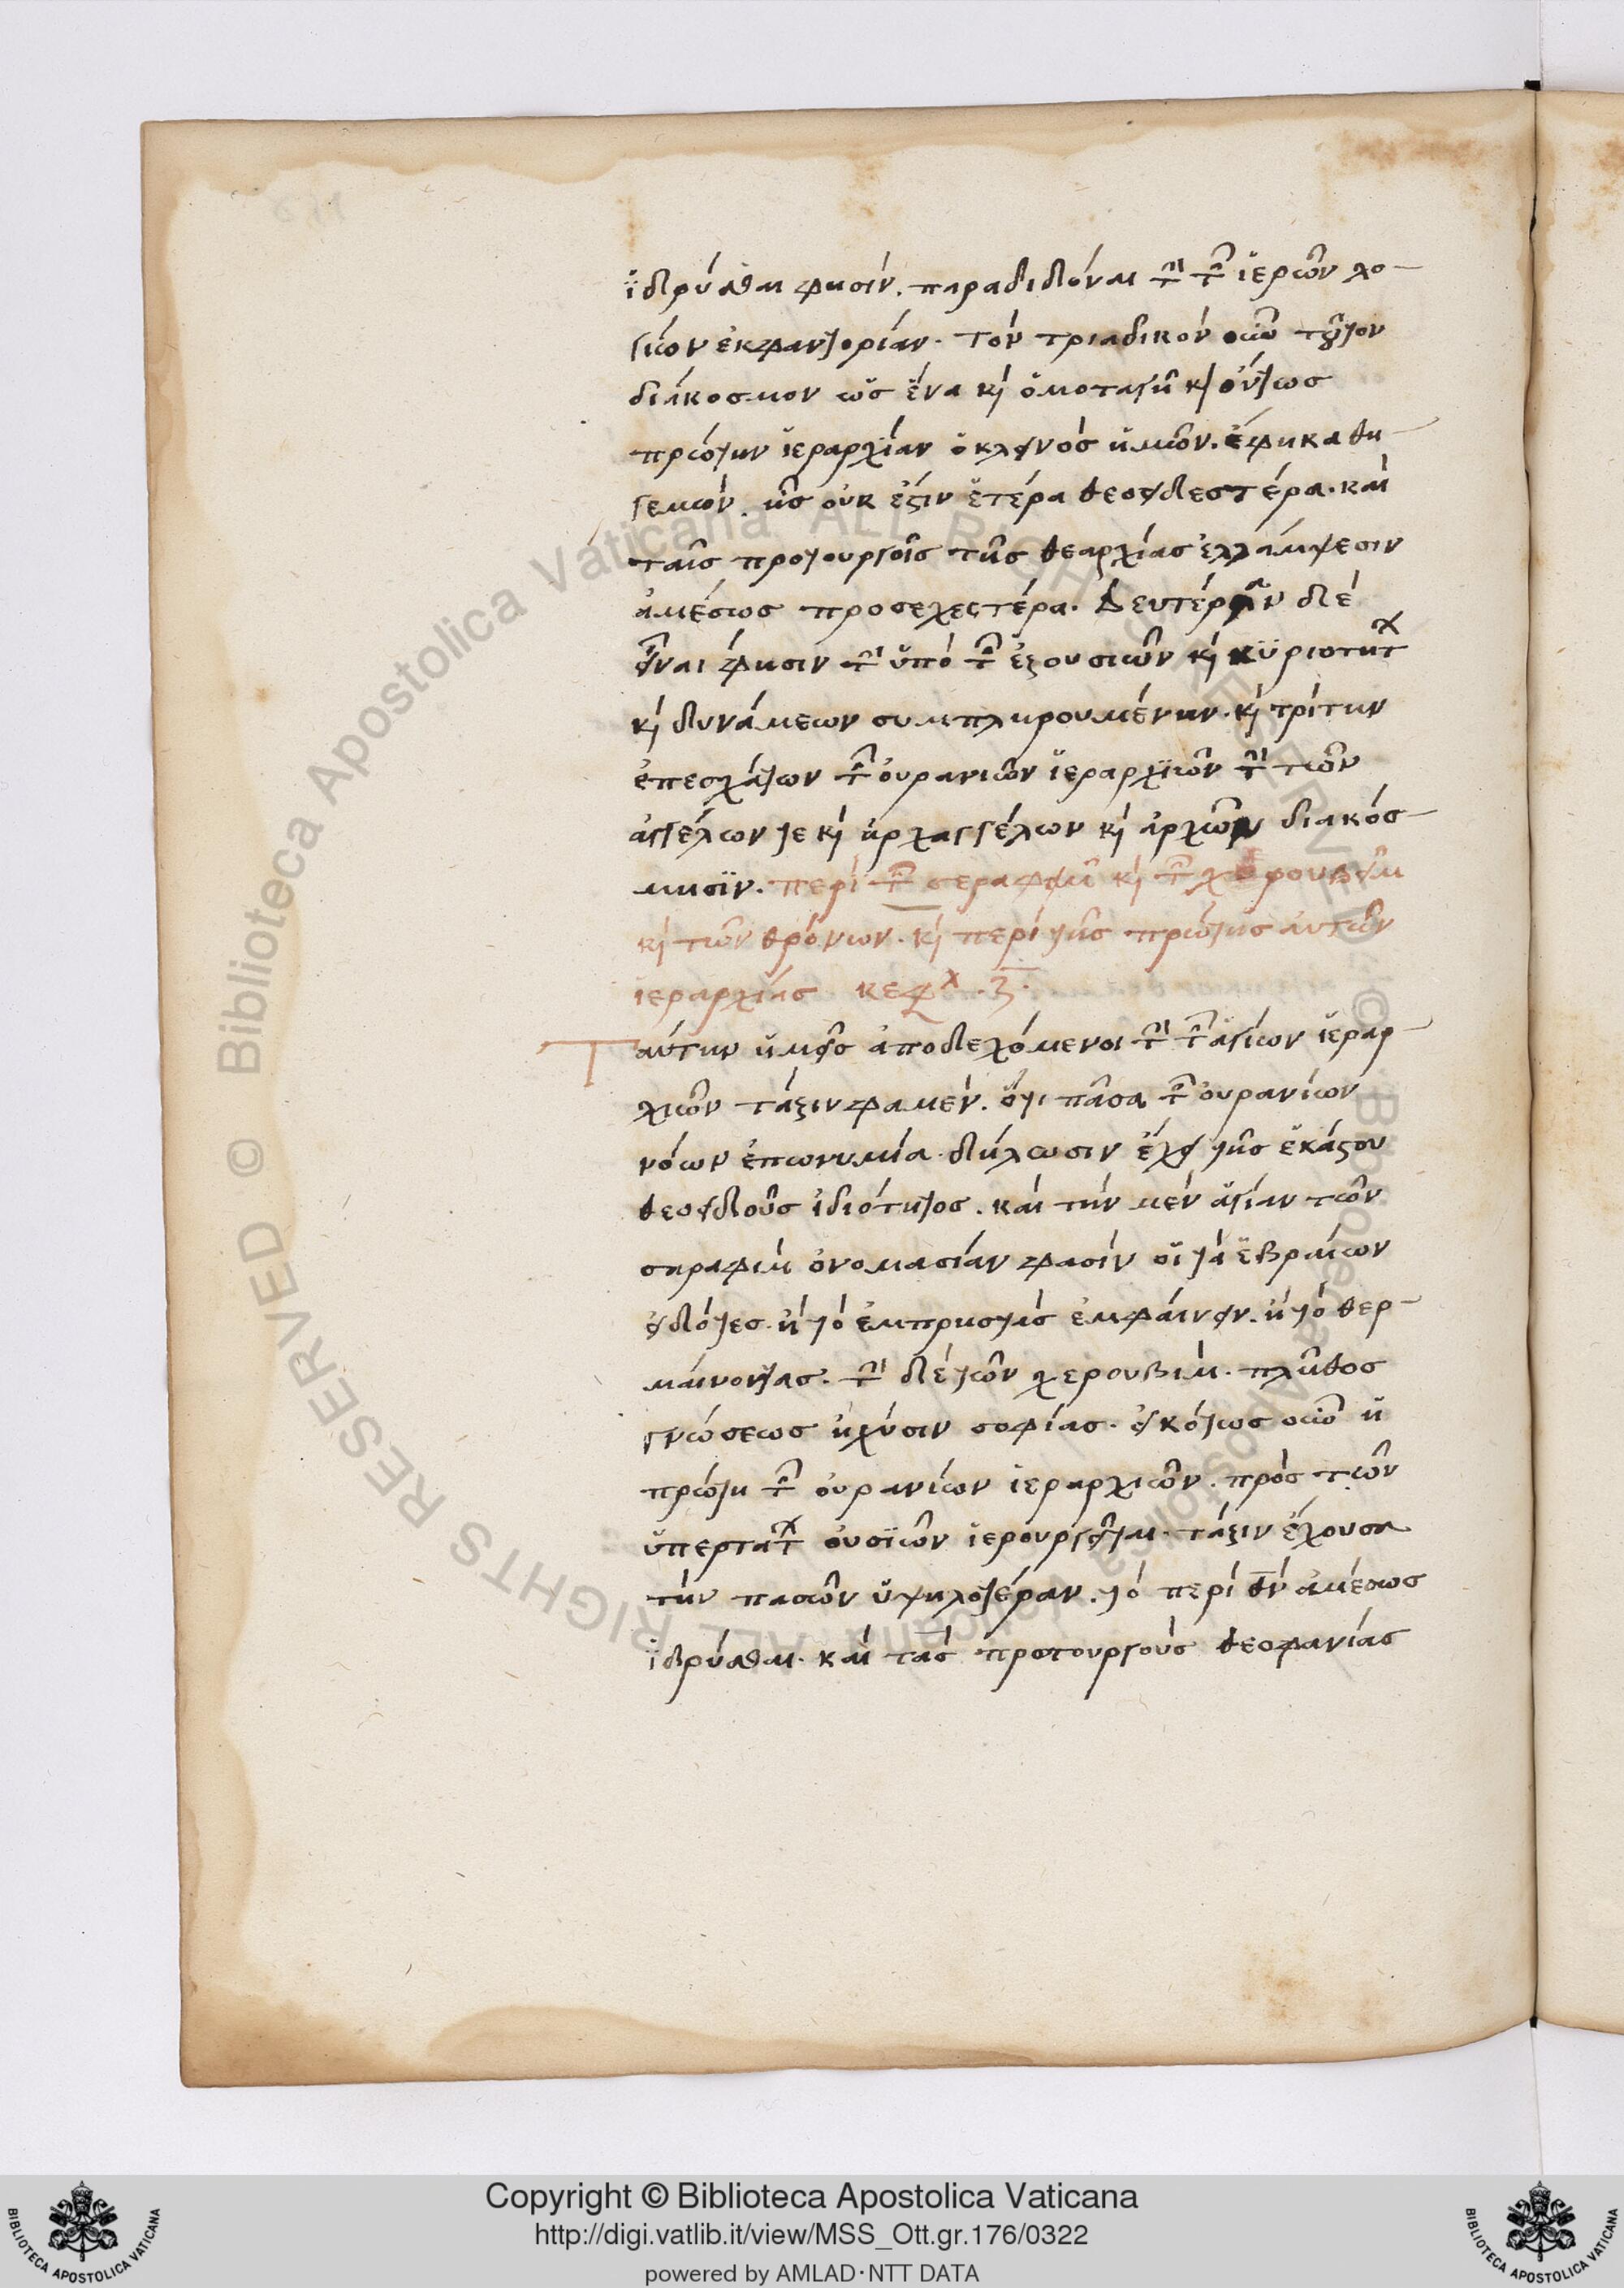 ἱδρύσθαι φησὶν. παραδιδόναι τὴν τῶν ἱερῶν λο-
γίων ἐκφαντορίαν. τὸν τριαδικὸν οὖν τοῦτον
διάκοσμον ὡς ἕνα καὶ ὁμοταγῆ καὶ ὄντως
πρώτην ἱεραρχίαν ὁ κλεινὸς ἡμῶν. ἔφη καθη-
γεμών. ἧς οὐκ ἔστιν ἑτέρα θεοειδεστέρα. καὶ
ταῖς προτουργοῖς τῆς θεαρχίας ἐλλάμψεσιν
ἀμέσως προσεχεστέρα. Δευτέραν δὲ
εἶναί φησιν τὴν ὑπὸ τῶν ἐξουσιῶν καὶ κυριοτήτων
καὶ δυνάμεων συμπληρουμένην. καὶ τρίτην
ἐπ' ἐσχάτων τῶν οὐρανίων ἱεραρχιῶν τὴν τῶν
ἀγγέλων τε καὶ ἀρχαγγέλων καὶ ἀρχῶν διακόσ-
μησιν. περὶ τῶν σεραφεὶμ καὶ τῶν χερουβεὶμ
καὶ τῶν θρόνων. καὶ περὶ τῆς πρώτης αὐτῶν
ἱεραρχίας κεφλ. ζ.
Ταύτην ἡμεῖς ἀποδεχόμενοι τὴν τῶν ἁγίων ἱεραρ-
χιῶν τάξιν φαμὲν. ὅτι πᾶσα τῶν οὐρανίων
νόων ἐπωνυμία. δήλωσιν ἔχει τῆς ἑκάστου
θεοειδοῦς ἰδιότητος. καὶ τὴν μὲν ἁγίαν τῶν
σηραφὶμ ὀνομασίαν φασὶν οἱ τὰ ἑβραίων
εἰδότες. ἢ τὸ ἐμπρηστὰς ἐμφαίνειν. ἢ τὸ θερ-
μαίνοντας. τὴν δὲ τῶν χερουβὶμ. πλῆθος
γνώσεως ἢ χύσιν σοφίας. εἰκότως οὖν ἡ
πρώτη τῶν οὐρανίων ἱεραρχιῶν. πρὸς τῶν
ὑπερτάτων οὐσιῶν ἱερουργεῖται. τάξιν ἔχουσα
τὴν πασῶν ὑψηλοτέραν. τὸ περὶ θν ἀμέσως
ἱδρύσθαι. καὶ τὰς προτουργοὺς θεοφανίας
Copyright © Biblioteca Apostolica Vaticana
http://digi.vatlib.it/view/MSS_Ott.gr.176/0322
powered by AMLAD·NTT DATA
BIBLIOTECA APOSTOLICA VATICANA
BIBLIOTECA APOSTOLICA VATICANA
© Biblioteca Apostolica Vaticana ALL RIGHTS RESERVED
© Biblioteca Apostolica Vaticana ALL RIGHTS RESERVED